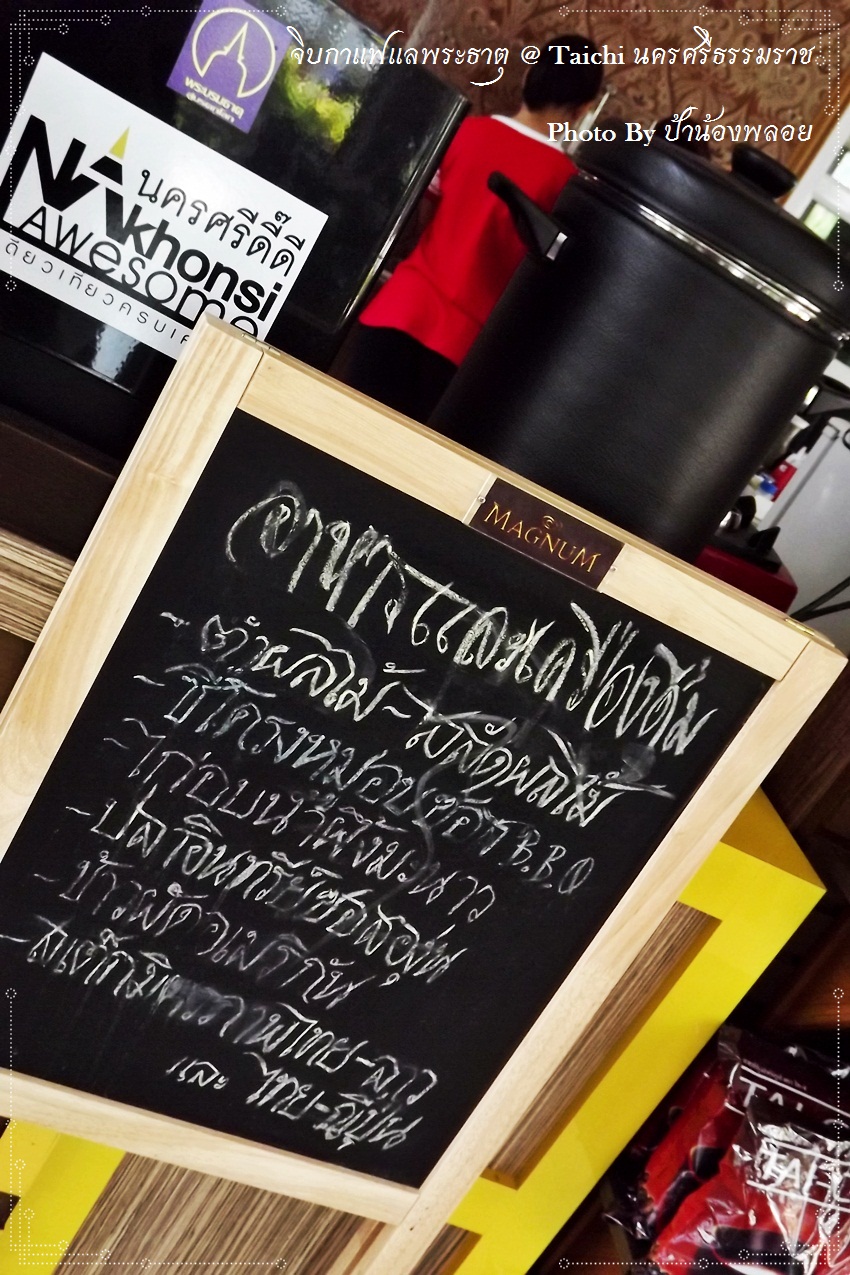 จิบกาแฟแลพระธาตุ @ Taichi นครศรีธรรมราช
Photo By ป้าน้องพลอย
พระบรมธาตุ
นครศรีดี๊ดี
NAkhonsi
Awesome
ดียวเที่ยวครบเค
MAGNUM
อาหารและเครื่องดื่ม
~ ตำผลไม้ ~ สลัดผลไม้
- ซี่โครงหมูอบซ๊อส B.B.Q
~ ไก่อบน้ำผึ้งมะนาว
- ปลาอินทรีย์ซอสญี่ปุ่น
- ข้าวผัดอเมริกัน
- สเต๊กมิตรภาพไทย-ลาว
และ ไทย-ญี่ปุ่น